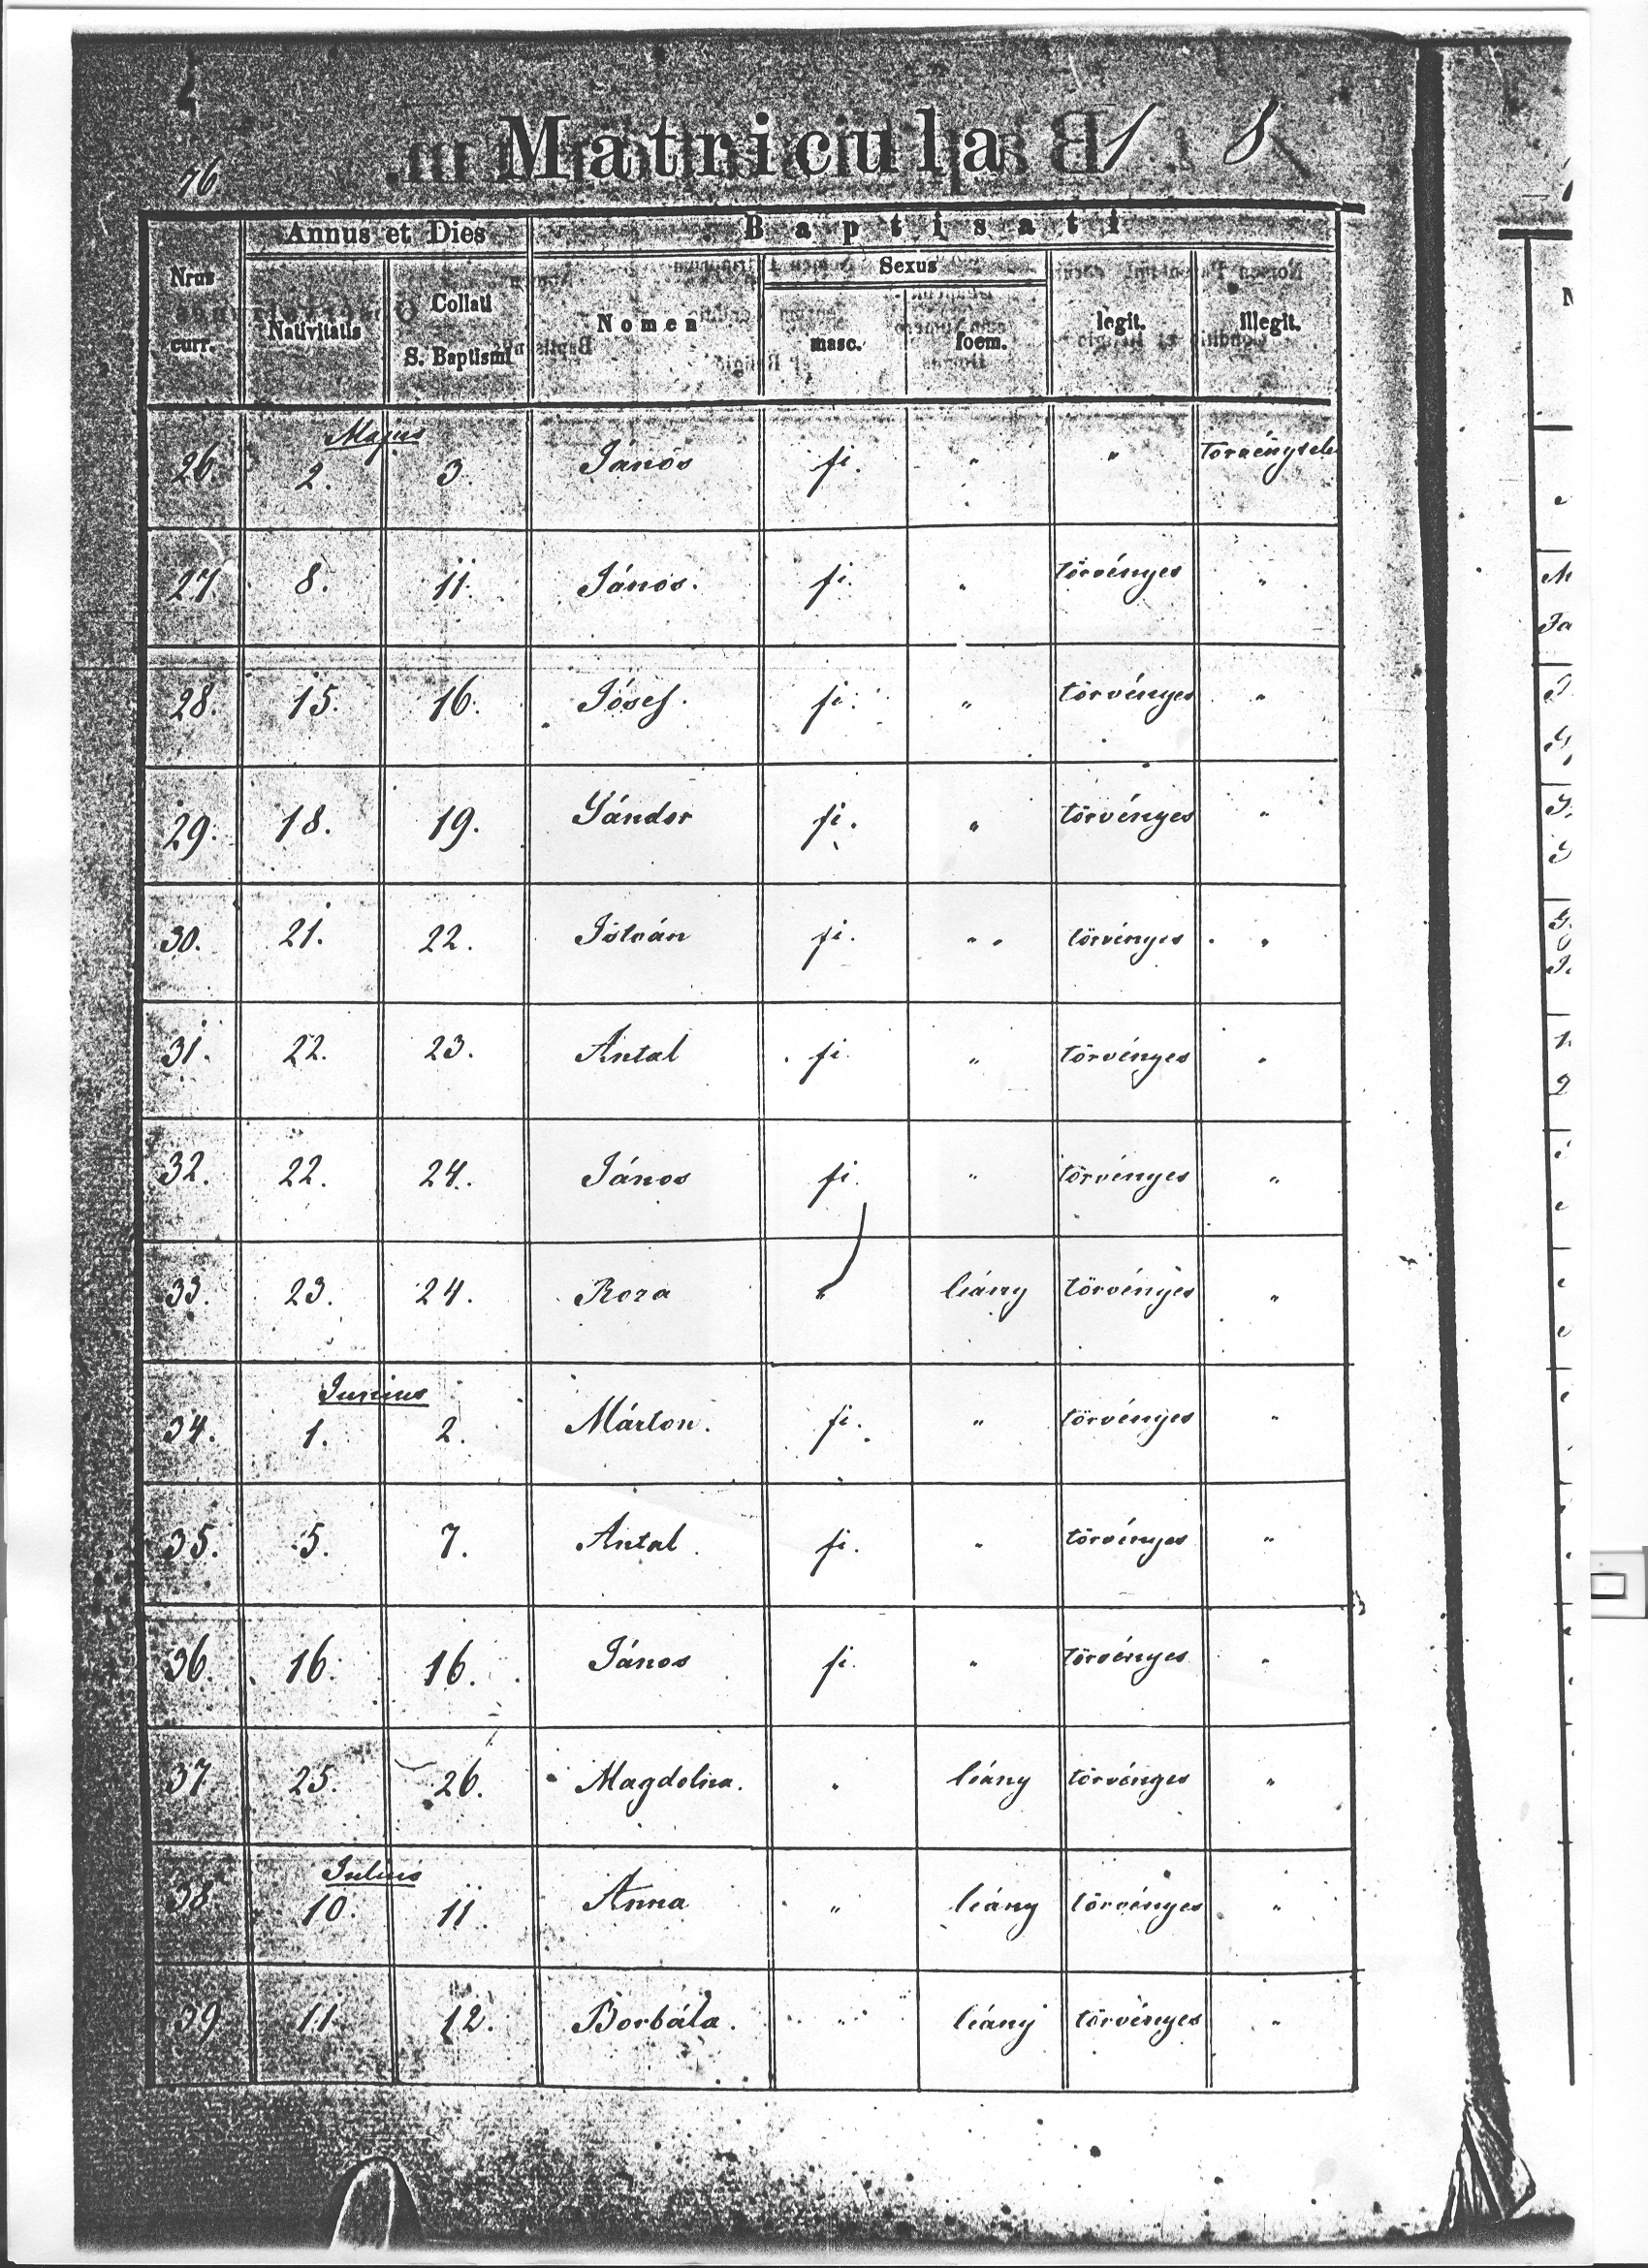 76
Matricula 1 8
Annus et Dies Baptisati
Nrus curr. Nativitatis Collati S. Baptismi Nomen Sexus masc. foem. legit. illegit.
Majus
26. 2. 3. János fi. " " Törvénytele
27. 8. 11. János. fi. " törvényes "
28. 15. 16. Jósef. fi. " törvényes "
29. 18. 19. Sándor fi. " törvényes "
30. 21. 22. István fi. " törvényes "
31. 22. 23. Antal fi. " törvényes "
32. 22. 24. János fi. " törvényes "
33. 23. 24. Roza " leány törvényes "
Junius
34. 1. 2. Márton. fi. " törvényes "
35. 5. 7. Antal fi. " törvényes "
36. 16. 16. János fi. " törvényes "
37 25. 26. Magdolna. " leány törvényes "
Julius
38 10. 11. Anna " leány törvényes "
39 11. 12. Borbála. " leány törvényes "